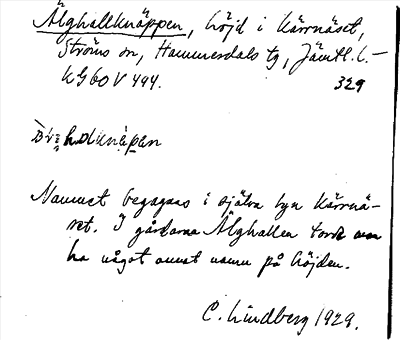 Älghallknäppen, höjd i Kärrnäset,
Ströms sn, Hammerdals tg, Jämtl. l. –
KG60V 494. 329
Namnet begagnas i själva byn Kärrnä-
set. I gårdarna Älghallen torde man
ha något annat namn på höjden.
C. Lindberg 1929.